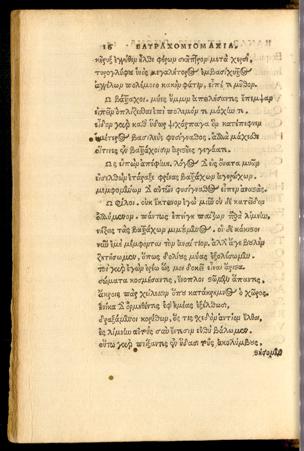 16 ΒΑΤΡΑΧΟΜΥΟΜΑΧΙΑ.
κῆρυξ ἐγγύθεν ἦλθε φέρων σκῆπτρον μετὰ χερσὶ,
τυρογλύφου υἱὸς μεγαλήτορος ἐμβασίχυτρος
ἀγγέλλων πολέμοιο κακὴν φάτιν, εἶπέ τε μῦθον.
Ω βάτραχοι. μύες ὔμμιν ἀπειλήσαντες ἔπεμψαν
εἰπεῖν ὁπλίζεσθαι ἐπὶ πόλεμόν τε μάχην τε.
εἶδον γὰρ καθ' ὕδωρ ψιχάρπαγα ὃν κατέπεφνεν
ὑμέτερος βασιλεὺς φυσίγναθος. ἀλλὰ μάχεσθε
οἵτινες ἐν βατράχοισιν ἀριστῆες γεγάατε.
Ως εἰπὼν ἀπέφηνε. λόγος δ' εἰς οὔατα μυῶν
εἰσελθὼν ἐτάραξε φρένας βατράχων ἀγερώχων.
μεμφομένων δ' αὐτῶν φυσίγναθος εἶπεν ἀναστὰς.
Ω φίλοι. οὐκ ἔκτεινον ἐγὼ μῦν οὐδὲ κατεῖδον
ὀλλύμενον. πάντως ἐπνίγη παίζων παρὰ λίμνην,
νήξεις τὰς βατράχων μιμούμενος. οἱ δὲ κάκιστοι
νῦν ἐμὲ μέμφονται τὸν ἀναίτιον. ἀλλ' ἄγε βουλὴν
ζητήσωμεν, ὅπως δολίους μύας ἐξολέσωμεν.
τοὶ γὰρ ἐγὼν ἐρέω ὥς μοι δοκεῖ εἶναι ἄριστα.
σώματα κοσμήσαντες, ἔνοπλοι στῶμεν ἅπαντες,
ἄκροις πὰρ χείλεσιν ὅπου κατάκρημνος ὁ χῶρος.
ἡνίκα δ' ὁρμηθέντες ἐφ' ἡμέας ἐξέλθωσι,
δραξάμενοι κορύθων, ὅς τις σχεδὸν ἀντίον ἔλθοι,
ἐς λίμνην αὐτοὺς σὺν ἔντεσιν εὐθὺ βάλωμεν.
οὕτω γὰρ πνίξαντες ἐν ὕδασι τοὺς ἀκολύμβους,
στήσομεν